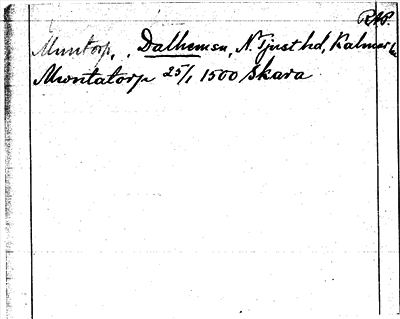 RAP.
Muntorp, . Dalhemssn, N. Tjust hd, Kalmar l.
Muntatorp 25/1 1500 Skara